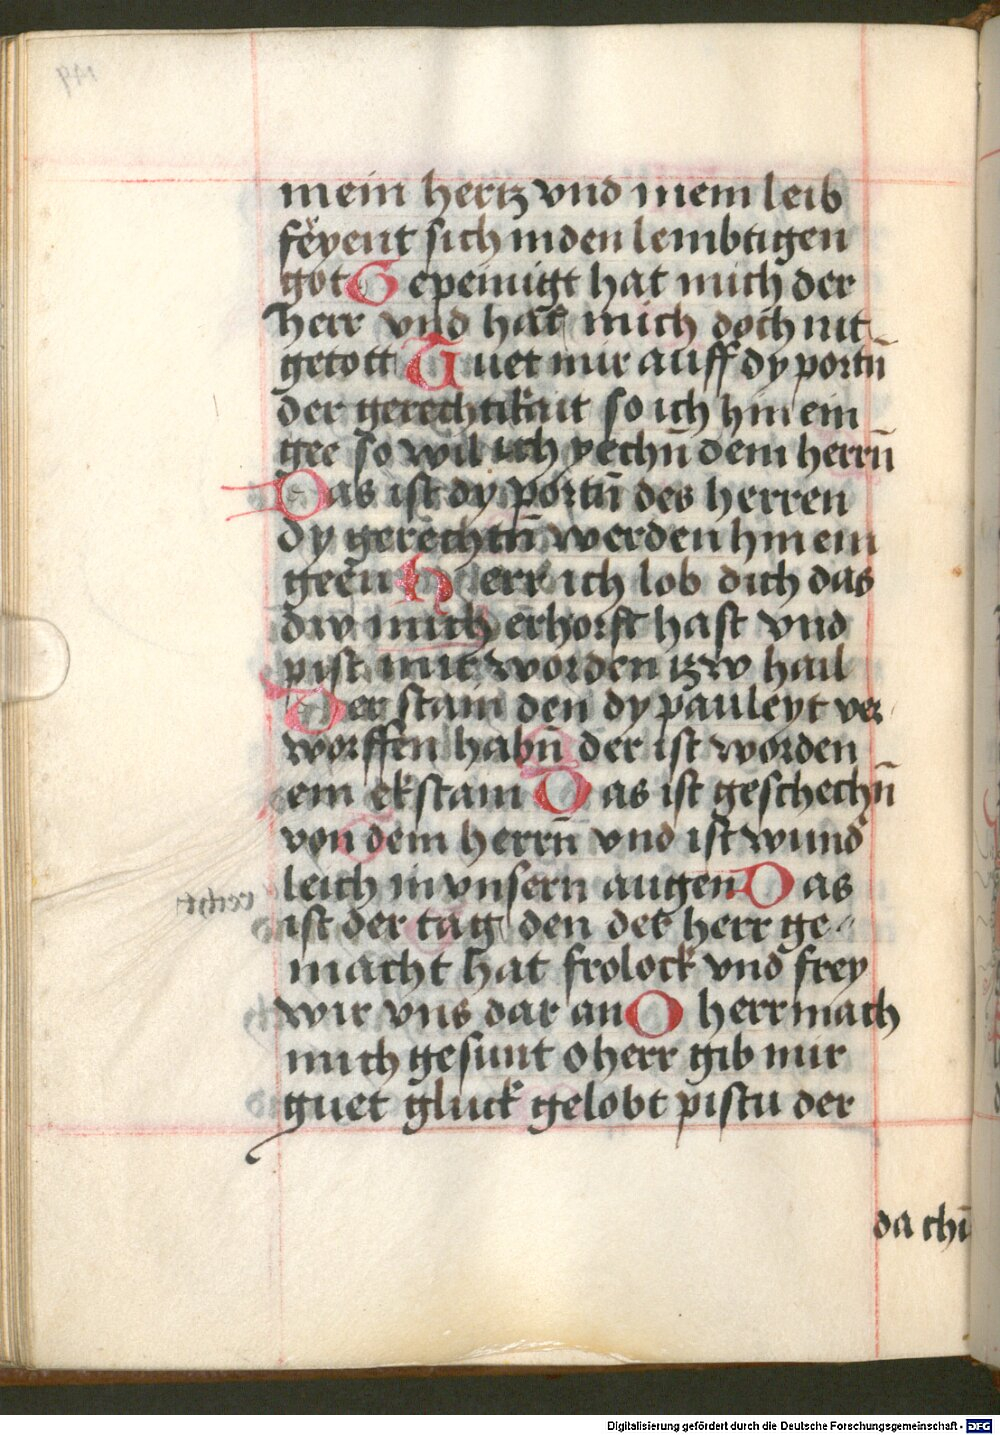 mein hertz vnd mein leib
fëyent sich in den lembtigen
got Gepeinigt hat mich der
herr vnd hat mich doch nit
getott Tuet mir auff dy portn̄
der gerechtikait so ich hin ein
gee so wil ich yechn̄ dem herrn̄
Das ist dy portn̄ des herren
dy gerechtn̄ werden hin ein
geen Herr ich lob dich das
dw mich erhorst hast vnd
pist mir worden tzw hail
Der stain den dy pauleyt ver
worffen habn̄ der ist worden
ein ekstain Das ist geschechn̄
von dem herrn̄ vnd ist wund
leich in vnsern augen Das
ist der tag den der herr ge
macht hat frolock vnd frey
wir vns dar an O herr mach
mich gesunt o herr gib mir
guet gluck gelobt pistu der
da chū
Digitalisierung gefördert durch die Deutsche Forschungsgemeinschaft - DFG